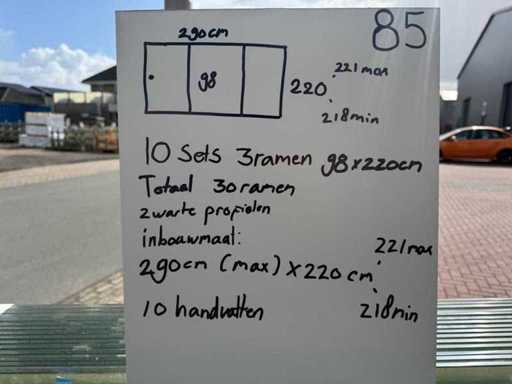 85
290cm
98
220
221max
218min
10 Sets 3ramen 98x220cm
Totaal 30ramen
zwarte profielen
inbouwmaat:
221max
290cm (max) x 220cm
218min
10 handvatten